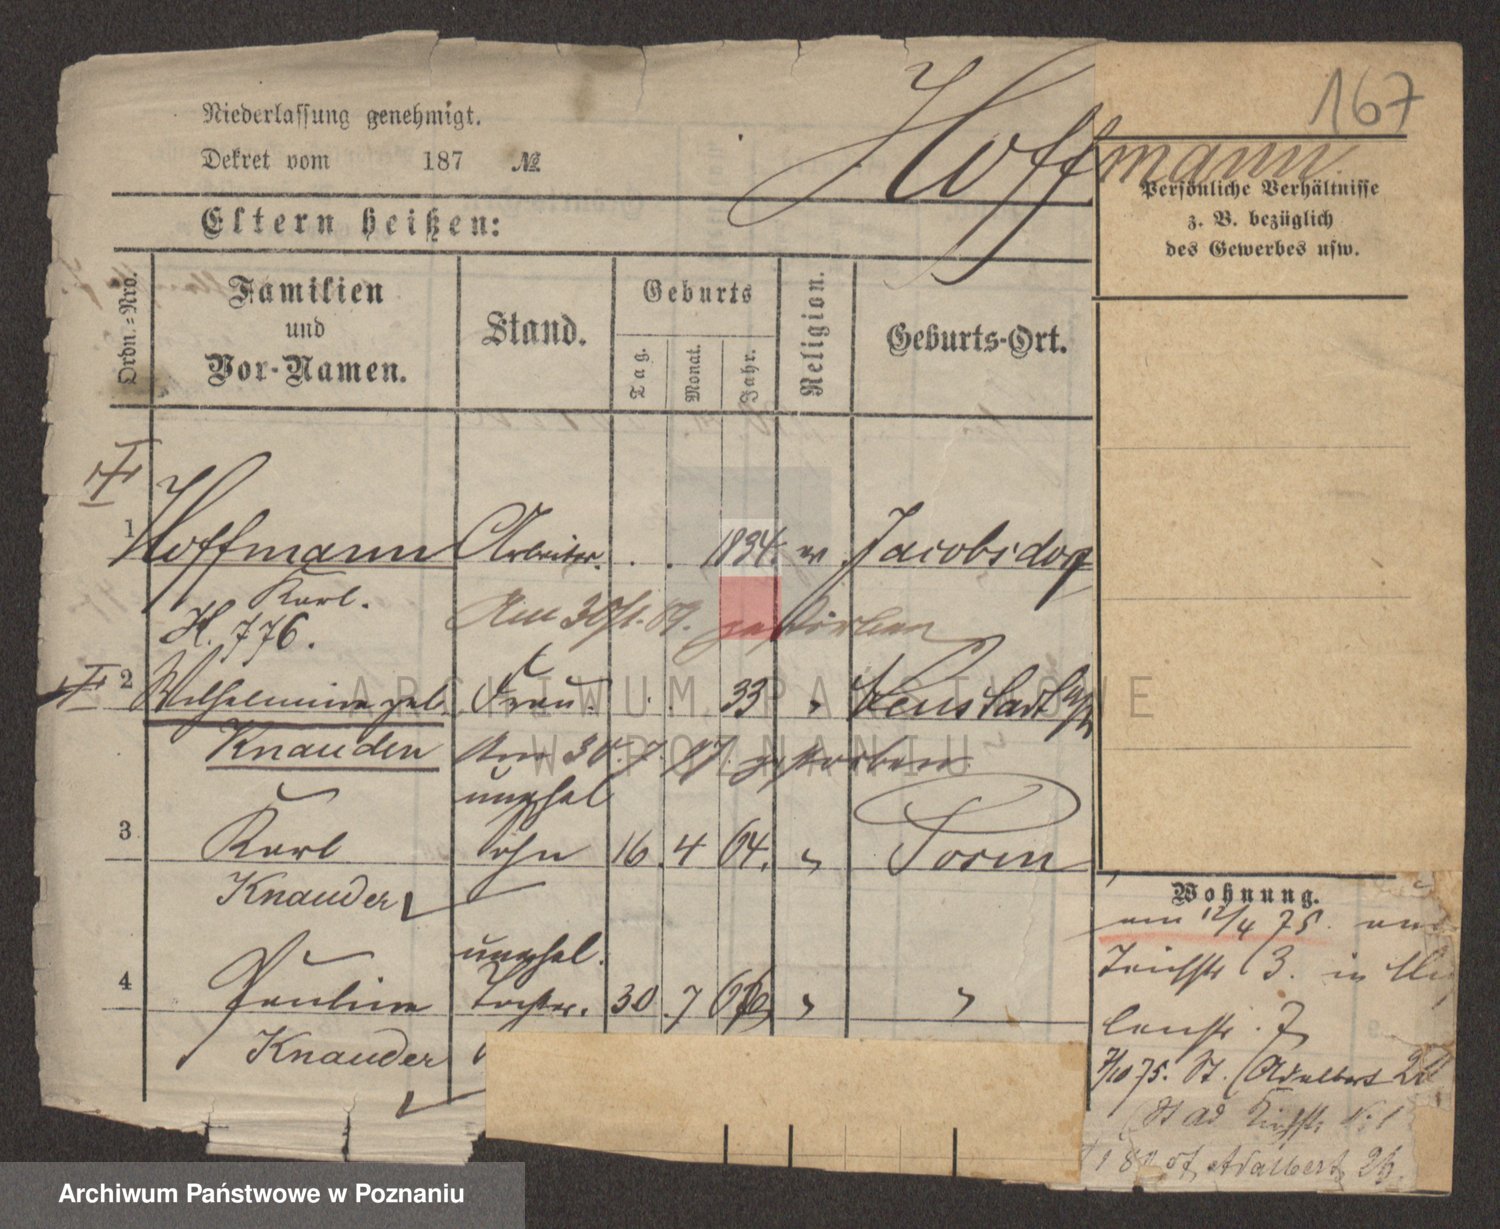 167
Hoffmann
Niederlassung genehmigt.
Dekret vom 187 №
Eltern heißen:
Ordn.-Nro.
Familien
und
Vor-Namen.
Stand.
Geburts
Tag.
Monat.
Jahr.
Religion.
Geburts-Ort.
Persönliche Verhältnisse
z. B. bezüglich
des Gewerbes usw.
1 Hoffmann Arbeiter. . . 1834. Jacobsdorf
Karl. Am 30/1. 89. gestorben
H. 776.
2 Wilhelmine geb. Frau. . . 33 " Neustadt
Knauden Am 30. 7. gestorben
unehel
3 Karl Sohn 16. 4 64. " Posen
Knauder
unehel.
4 Pauline Tochter. 30 7 " "
Knauder
Wohnung.
am 12/4 75.
Teichstr 3. in
lenstr. 7
7/10 75. St. Adalbert
St Ad
St Adalbert 26.
ARCHIWUM PAŃSTWOWE
W POZNANIU
Archiwum Państwowe w Poznaniu